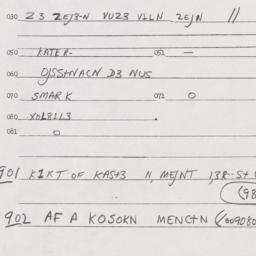 030 Z3 ZEJ3-N VUZ3 VLLN ZEJN //
050 KATER- 052 —
060 OJSStNACN D3 NUS
070 SMARK 072 O
080 XOL8LL3 .
081 O
901 K1KT OF KASt3 N, MEJNT
(98
902 AF A KOSOKN MENCTN (009080